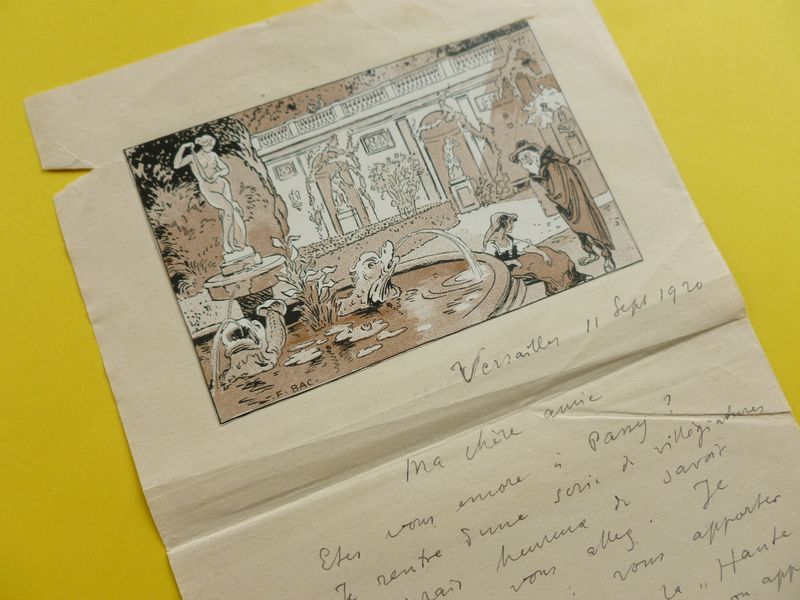 F. BAC.
Versailles 11 Sept 1920
Ma chère amie
Etes vous encore à Passy?
Je rentre d'une série de villégiatures
heureux de savoir
vous allez. Je
vous apporter
la "Haute